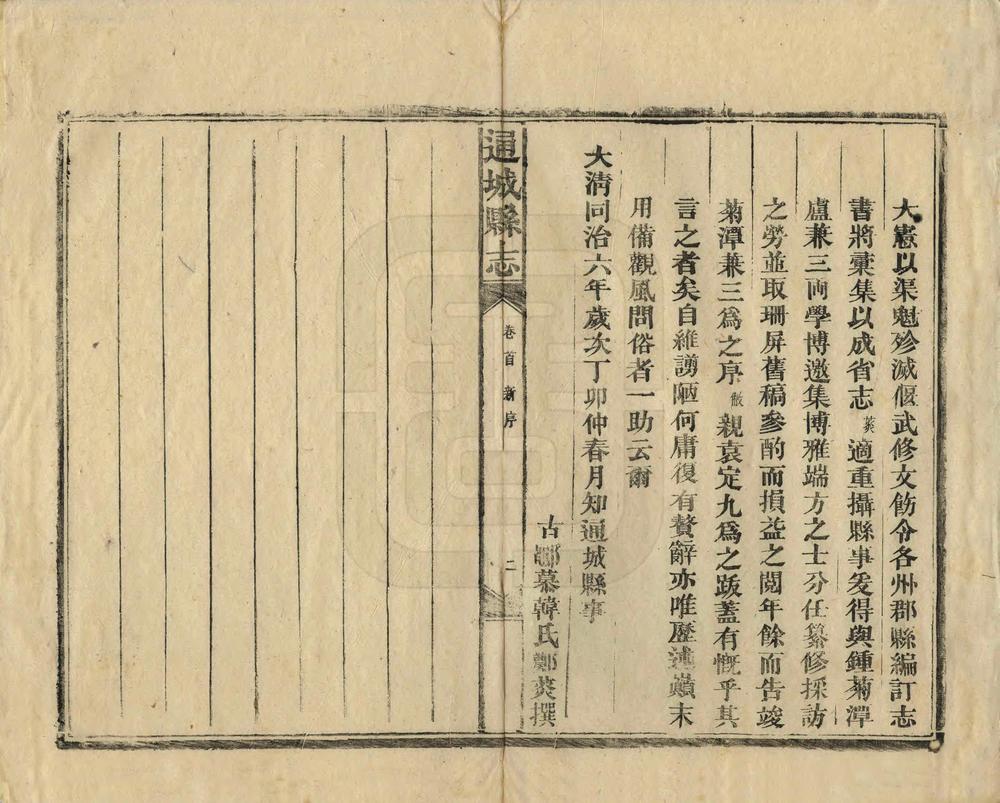 大憲以渠魁殄滅偃武修文飭令各州郡縣編訂志
書將彙集以成省志葵適重攝縣事爰得與鍾菊潭
盧兼三両學博邀集博雅端方之士分任纂修採訪
之勞並取珊屏舊稿參酌而損益之閱年餘而告竣
菊潭兼三爲之序敝親袁定九爲之跋蓋有慨乎其
言之者矣自維謭陋何庸復有贅辭亦唯歷述巔末
用備觀風問俗者一助云爾
大淸同治六年歲次丁卯仲春月知通城縣事
古酃慕韓氏鄭葵撰
通城縣志
卷首 新序
二